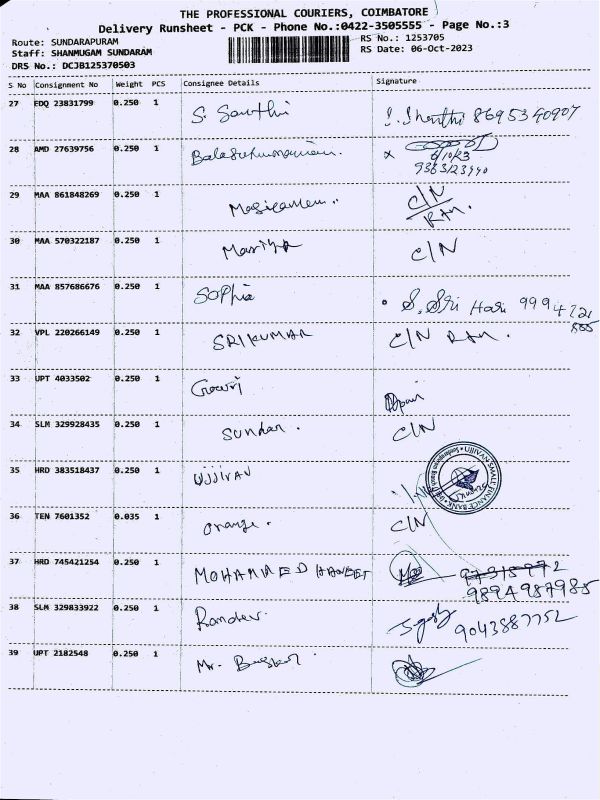 THE PROFESSIONAL COURIERS, COIMBATORE
Delivery Runsheet - PCK - Phone No.:0422-3505555 - Page No.:3
Route: SUNDARAPURAM RS No.: 1253705
Staff: SHANMUGAM SUNDARAM RS Date: 06-Oct-2023
DRS No.: DCJB125370503
S No Consignment No Weight PCS Consignee Details Signature
27 EDQ 23831799 0.250 1 S. Santhi 8695340907
28 AMD 27639756 0.250 1 Balasubramaniam. x
6/10/23
9363123940
29 MAA 861848269 0.250 1 C/N
RAM.
30 MAA 570322187 0.250 1 Mariya C/N
31 MAA 857686676 0.250 1 Sophia S. Sri Hari 9994721
555
32 VPL 220266149 0.250 1 SRIKUMAR C/N RAM.
33 UPT 4033502 0.250 1 Gowri
34 SLM 329928435 0.250 1 Sundar. C/N
35 HRD 383518437 0.250 1 UJJIVAN
UJJIVAN SMALL FINANCE BANK
36 TEN 7601352 0.035 1 Orange. C/N
37 HRD 745421254 0.250 1 MOHAMMED HANEEF
9894987985
38 SLM 329833922 0.250 1 Ramdev. 9043887752
39 UPT 2182548 0.250 1 Mr. Baskar